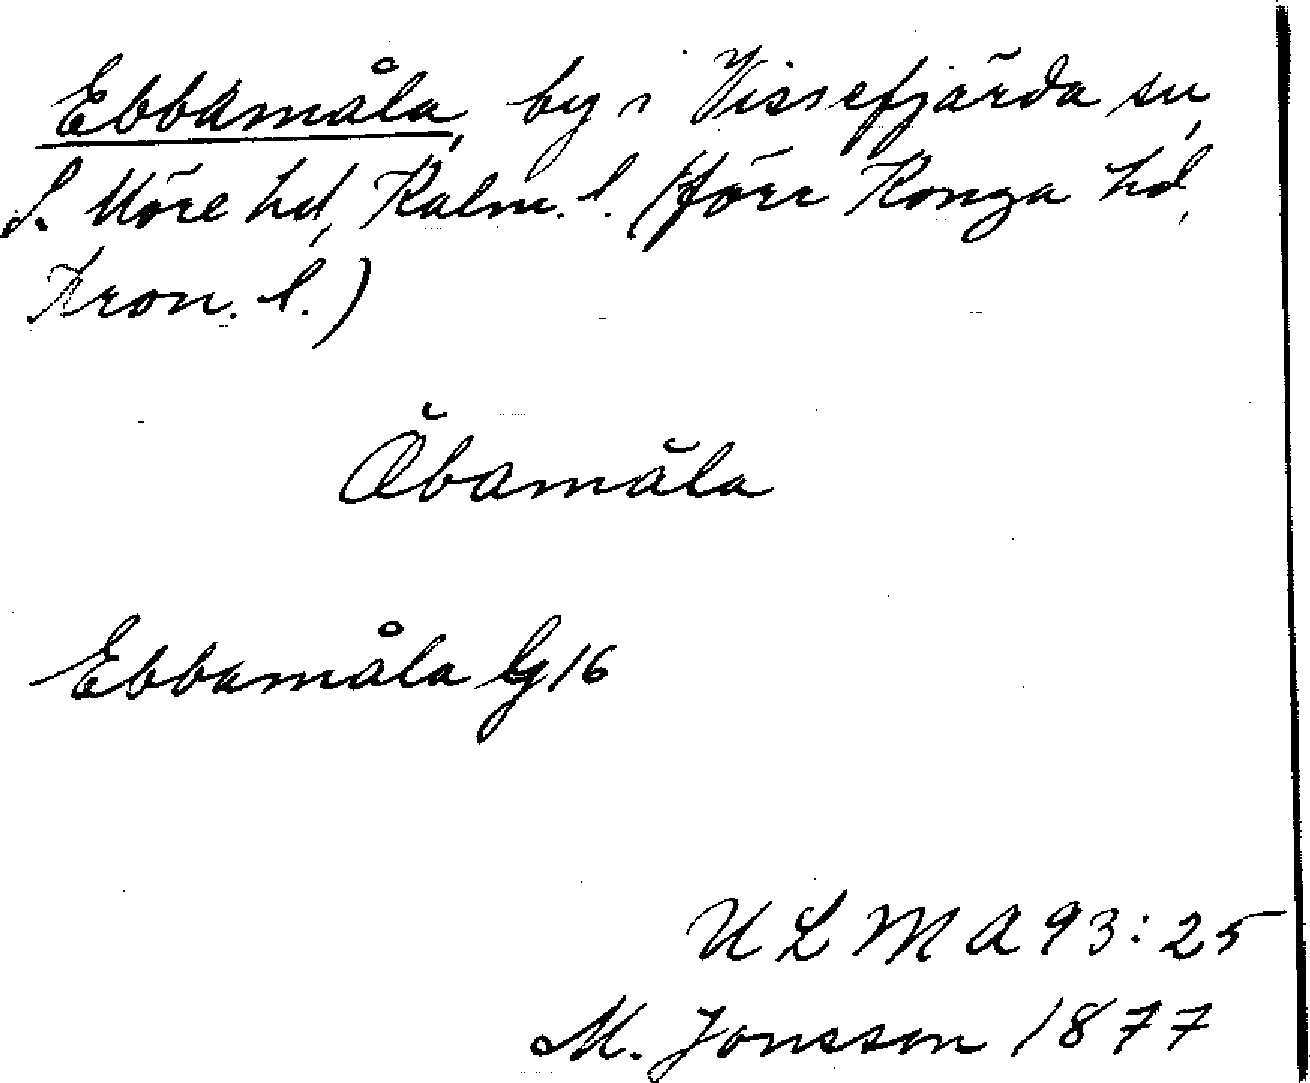 Ebbamåla, by i Vissefjärda sn,
S. Möre hd, Kalm. l. (förr Konga hd,
Kron. l.)
Æ̆bamăla
Ebbamåla G 16
ULMA 93:25
M. Jonsson 1877